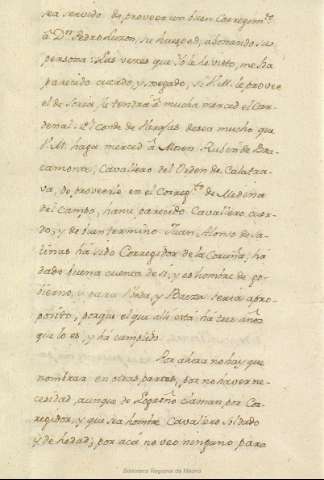 sea servido de proveer un buen Corregimto.
à Dn. Pedro Luzon, su huesped, abonando su
persona: Las veces que Yó le hè visto, me ha
parecido cuerdo, y sosegado, si V.M. le provee
el de Soria, le tendrà à mucha merced el Car-
denal: El Conde de Nieglas desea mucho que
V.M. haga merced à Mosen Rubin de Bra-
camonte, Cavallero del Orden de Calatra-
va, de proveerle en el Corregto. de Medina
del Campo, hame parecido Cavallero cuer-
do, y de buen termino. Juan Alonso de Sa-
linas hà sido Corregidor de la Coruña, hà
dado buena cuenta de si, y es hombre de go-
bierno, y para Ubeda, y Baeza seria apro-
posito, porque el que alli està hà tres años
que lo es, y hà cumplido.
Por ahora no hay que
nombrar en otras partes, por no haver ne-
cesidad, aunque de Logroño claman por Cor-
regidor, y que sea hombre Cavallero Soldado
y de hedad, por acà no veo ninguno para
Biblioteca Regional de Madrid